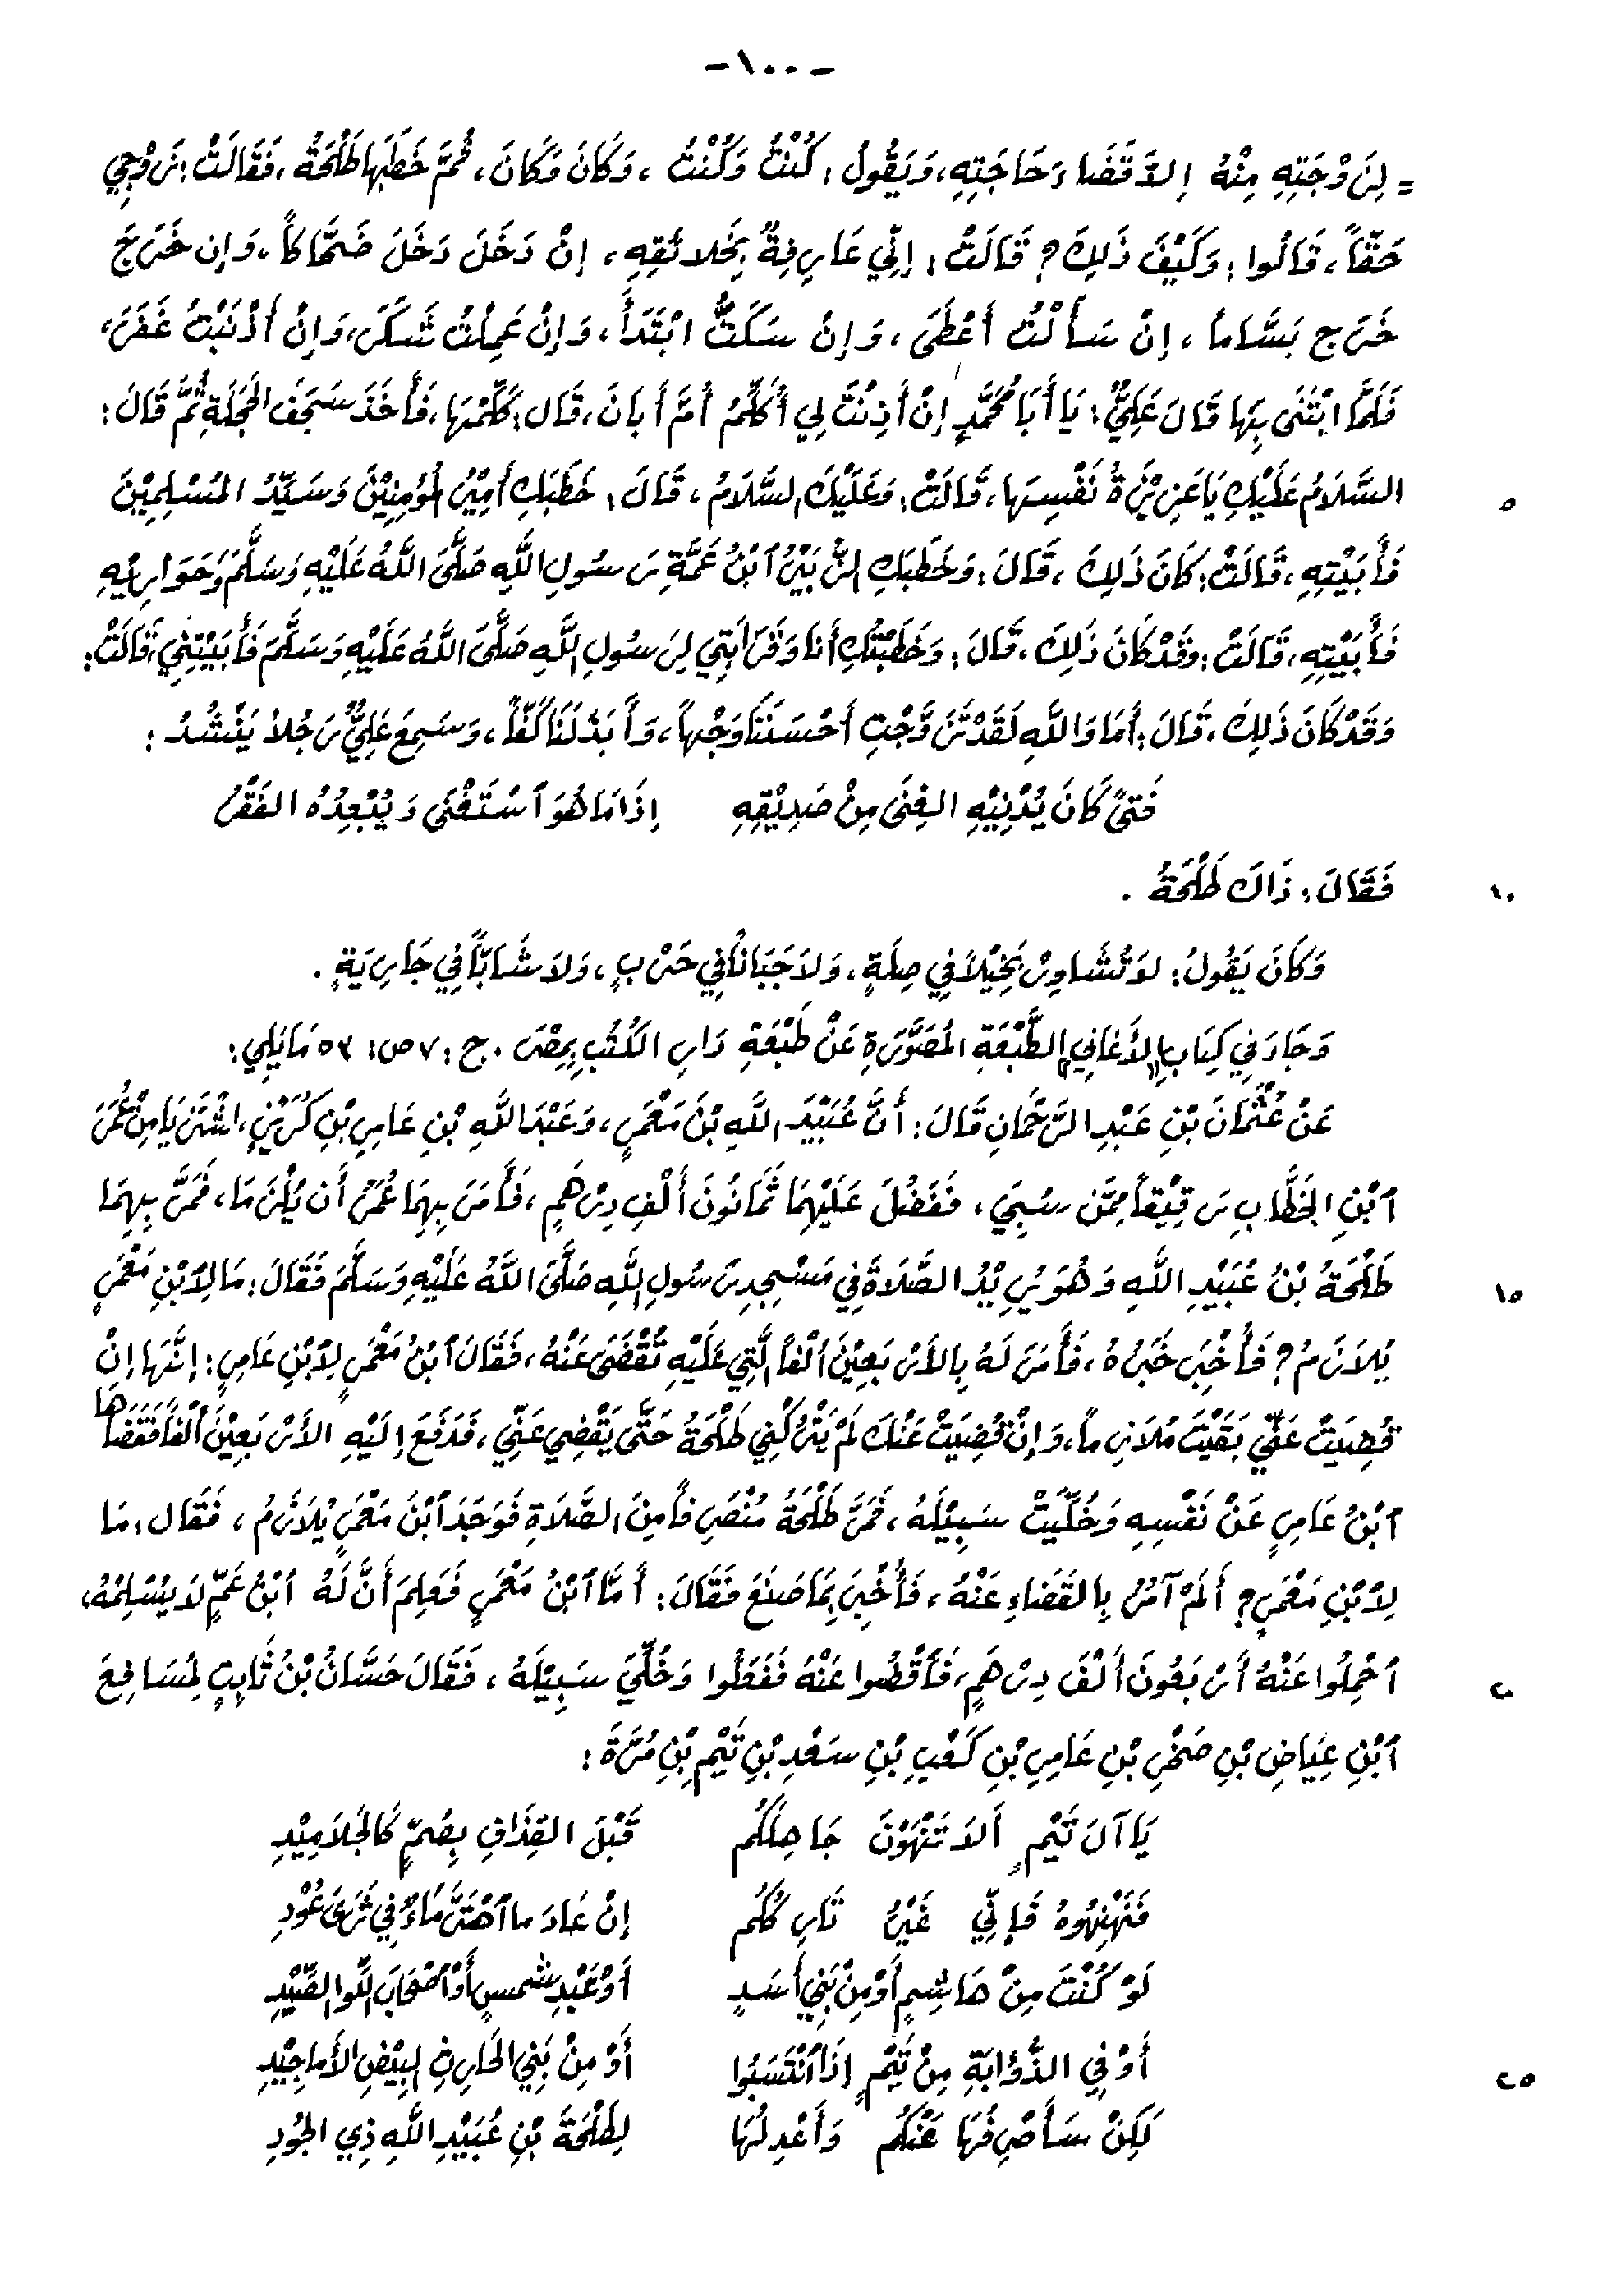 -١٠٠-
= لِزَوْجَتِهِ مِنْهُ إِلاَّ قَضَاءَ حَاجَتِهِ، وَيَقُولُ: كُنْتُ وَكُنْتُ، وَكَانَ وَكَانَ، ثُمَّ خَطَبَهَا طَلْحَةُ، فَقَالَتْ: زَوْجِي
حَقّاً، قَالُوا: وَكَيْفَ ذَلِكَ؟ قَالَتْ: إِنِّي عَارِفَةٌ بِخَلائَقِهِ، إِنْ دَخَلَ دَخَلَ ضَحَّاكاً، وَإِن خَرَجَ
خَرَج بَسَّاماً، إِنْ سَأَلْتُ أَعْطَى، وَإِنْ سَكَتُّ ابْتَدَأَ، وَإِنْ عَمِلْتُ شَكَرَ، وَإِنْ أَذْنَبْتُ غَفَرَ،
فَلَمَّا ابْتَنَى بِهَا قَالَ عَلِيٌّ: يَا أَبَا مُحَمَّدٍ إِنْ أَذِنْتَ لِي أُكَلِّمُ أُمَّ أَبَانَ، قَال: كَلِّمْهَا، فَأَخَذَ سَجَفَ الحَجَلَةِ ثُمَّ قَالَ:
السَّلاَمُ عَلَيْكِ يَا عَزِيْزَةُ نَفْسِهَا، قَالَتْ: وَعَلَيْكَ السَّلاَمُ، قَالَ: خَطَبَكِ أَمِيْرُ المُؤمِنِيْنَ وَسَيِّدُ المُسْلِمِيْنَ ٥
فَأَبَيْتِهِ، قَالَتْ: كَانَ ذَلِكَ، قَالَ: وَخَطَبَكِ الزُّبَيْرُ ٱبْنُ عَمَّةِ رَسُولِ اللَّهِ صَلَّى اللَّهُ عَلَيْهِ وَسَلَّمَ وَحَوَارِيِّهِ
فَأَبَيْتِهِ، قَالَتْ: وَقَدْ كَانَ ذَلِكَ، قَالَ: وَخَطَبْتُكِ أَنَا وَقَرَابَتِي لِرَسُولِ اللَّهِ صَلَّى اللَّهُ عَلَيْهِ وَسَلَّمَ فَأَبَيْتِنِي، قَالَتْ:
وَقَدْ كَانَ ذَلِكَ، قَالَ: أَمَا وَاللَّهِ لَقَدْ تَزَوَّجْتِ أَحْسَنَنَا وَجْهاً، وَأَبَذْلَنَا كَفّاً، وَسَمِعَ عَلِيٌّ رَجُلاً يَنْشُدُ:
فَتىً كَانَ يُدْنِيْهِ الغِنَى مِنْ صَدِيْقِهِ إِذَا مَا هُوَ ٱسْتَغْنَى وَيُبْعِدُهُ الفَقْرُ
فَقَالَ: ذَاكَ طَلْحَةُ. ١٠
وَكَانَ يَقُولُ: لاَ تُشَاوِرْ بَخِيْلاً فِي صِلَةٍ، وَلاَ جَبَاناً فِي حَرْبٍ، وَلاَ شَابّاً فِي جَارِيَةٍ.
وَجَاءَ فِي كِتَابِ «الأَغَانِي» الطَّبْعَةِ المُصَوَّرَةِ عَنْ طَبْعَةِ دَارِ الكُتُبِ بِمِصْرَ. ج: ٧ ص: ٥٣ مَا يَلِي:
عَنْ عُثْمَانَ بْنِ عَبْدِ الرَّحْمَانِ قَالَ: أَنَّ عُبَيْدَ اللَّهِ بْنَ مَعْمَرٍ، وَعَبْدَ اللَّهِ بْنِ عَامِرِ بْنِ كُرَيْزٍ، اشْتَرَيَا مِنْ عُمَرَ
ٱبْنِ الخَطَّابِ رَقِيْقاً مِمَّن سُبِيَ، فَفَضُلَ عَلَيْهِمَا ثَمَانُونَ أَلْفِ دِرْهَمٍ، فَأَمَرَ بِهِمَا عُمَرُ أَن يُلْزَمَا، فَمَرَّ بِهِمَا
طَلْحَةُ بْنُ عُبَيْدِ اللَّهِ وَهُوَ يُرِيْدُ الصَّلاَةَ فِي مَسْجِدِ رَسُولِ اللَّهِ صَلَّى اللَّهُ عَلَيْهِ وَسَلَّمَ فَقَالَ: مَا لاِبْنِ مَعْمَرٍ ١٥
يُلاَزَمُ؟ فَأُخْبِرَ خَبَرُهُ، فَأَمَرَ لَهُ بِالأَرْبَعِيْنَ أَلْفاً الَّتِي عَلَيْهِ تُقْضَى عَنْهُ، فَقَالَ ٱبْنُ مَعْمَرٍ لاِبْنِ عَامِرٍ: إِنَّهَا إِنْ
قُضِيَتْ عَنِّي بَقَيْتَ مُلاَزماً، وَإِنْ قُضِيَتْ عَنْكَ لَمْ يَتْرُكْنِي طَلْحَةُ حَتَّى يَقْضِي عَنِّي، فَدَفَعَ إِلَيْهِ الأَرْبَعِيْنَ أَلْفاً فَقَضَاهَا
ٱبْنُ عَامِرٍ عَنْ نَفْسِهِ وَخُلِّيَتْ سَبِيْلَهُ، فَمَرَّ طَلْحَةُ مُنْصَرِفاً مِنَ الصَّلاَةِ فَوَجَدَ ٱبْنَ مَعْمَرٍ يُلاَزَمُ، فَقَال: مَا
لاِبْنِ مَعْمَرٍ؟ أَلَمْ آمُرْ بِالقَضَاءِ عَنْهُ، فَأُخْبِرَ بِمَا صَنَعَ فَقَالَ: أَمَّا ٱبْنُ مَعْمَرٍ فَعَلِمَ أَنَّ لَهُ ٱبْنُ عَمٍّ لاَ يُسْلِمُهُ،
ٱحْمِلُوا عَنْهُ أَرْبَعُونَ أَلْفَ دِرْهَمٍ، فَٱقْضُوا عَنْهُ فَفَعَلُوا وَخُلِّيَ سَبِيْلَهُ، فَقَالَ حَسَّانُ بْنُ ثَابِتٍ لِمُسَافِعَ ٢٠
ٱبْنِ عِيَاضِ بْنِ صَخْرِ بْنِ عَامِرِ بْنِ كَعْبِ بْنِ سَعْدِ بْنِ تَيْمِ بْنِ مُرَّةَ:
يَا آلَ تَيْمٍ أَلاَ تَنْهَوْنَ جَاهِلَكُم قَبْلَ القِذَافِ بِصُمٍّ كَالجَلاَمِيْدِ
فَنَهْنِهُوهُ فَإِنِّي غَيْرُ تَارِكُكُم إِنْ عَادَ ما ٱهْتَزَّ مَاءٌ فِي ثَرَى عُوْدِ
لَوْ كُنْتَ مِنْ هَاشِمٍ أَوْ مِنْ بَنِي أَسَدٍ أَوْ عَبْدِ شمسٍ أَوْ ٱصْحَابَ اللِّوا الصِّيْدِ
أَوْ فِي الذُّؤابَةِ مِنْ تَيْمٍ إِذَا ٱنْتَسَبُوا أَوْ مِنْ بَنِي الحَارِثِ البِيْضِ الأَمَاجِيْدِ ٢٥
لَكِنْ سَأَصْرِفُهَا عَنْكُم وَأَعْدِلُهَا لِطَلْحَةَ بْنِ عُبَيْدِ اللَّهِ ذِي الجُودِ